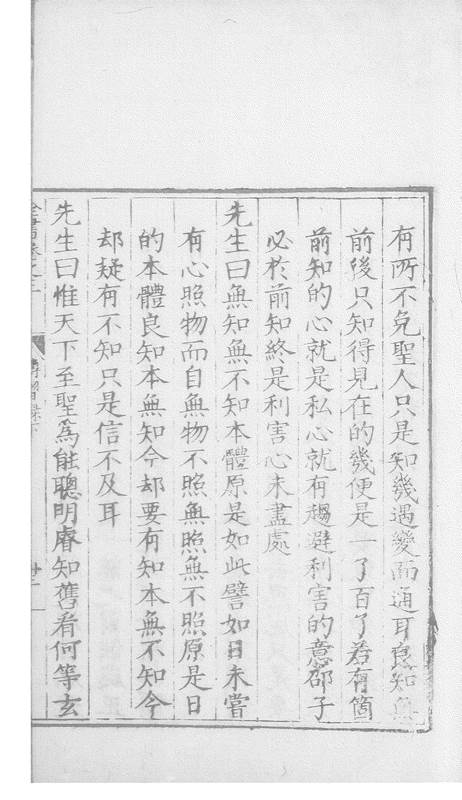 有所不免聖人只是知幾遇變而通耳良知無
前後只知得見在的幾便是一了百了若有箇
前知的心就是私心就有趨避利害的意邵子
必於前知終是利害心未盡處
先生曰無知無不知本體原是如此譬如日未嘗
有心照物而自無物不照無照無不照原是日
的本體良知本無知今却要有知本無不知今
却疑有不知只是信不及耳
先生曰惟天下至聖為能聰明睿知舊看何等玄